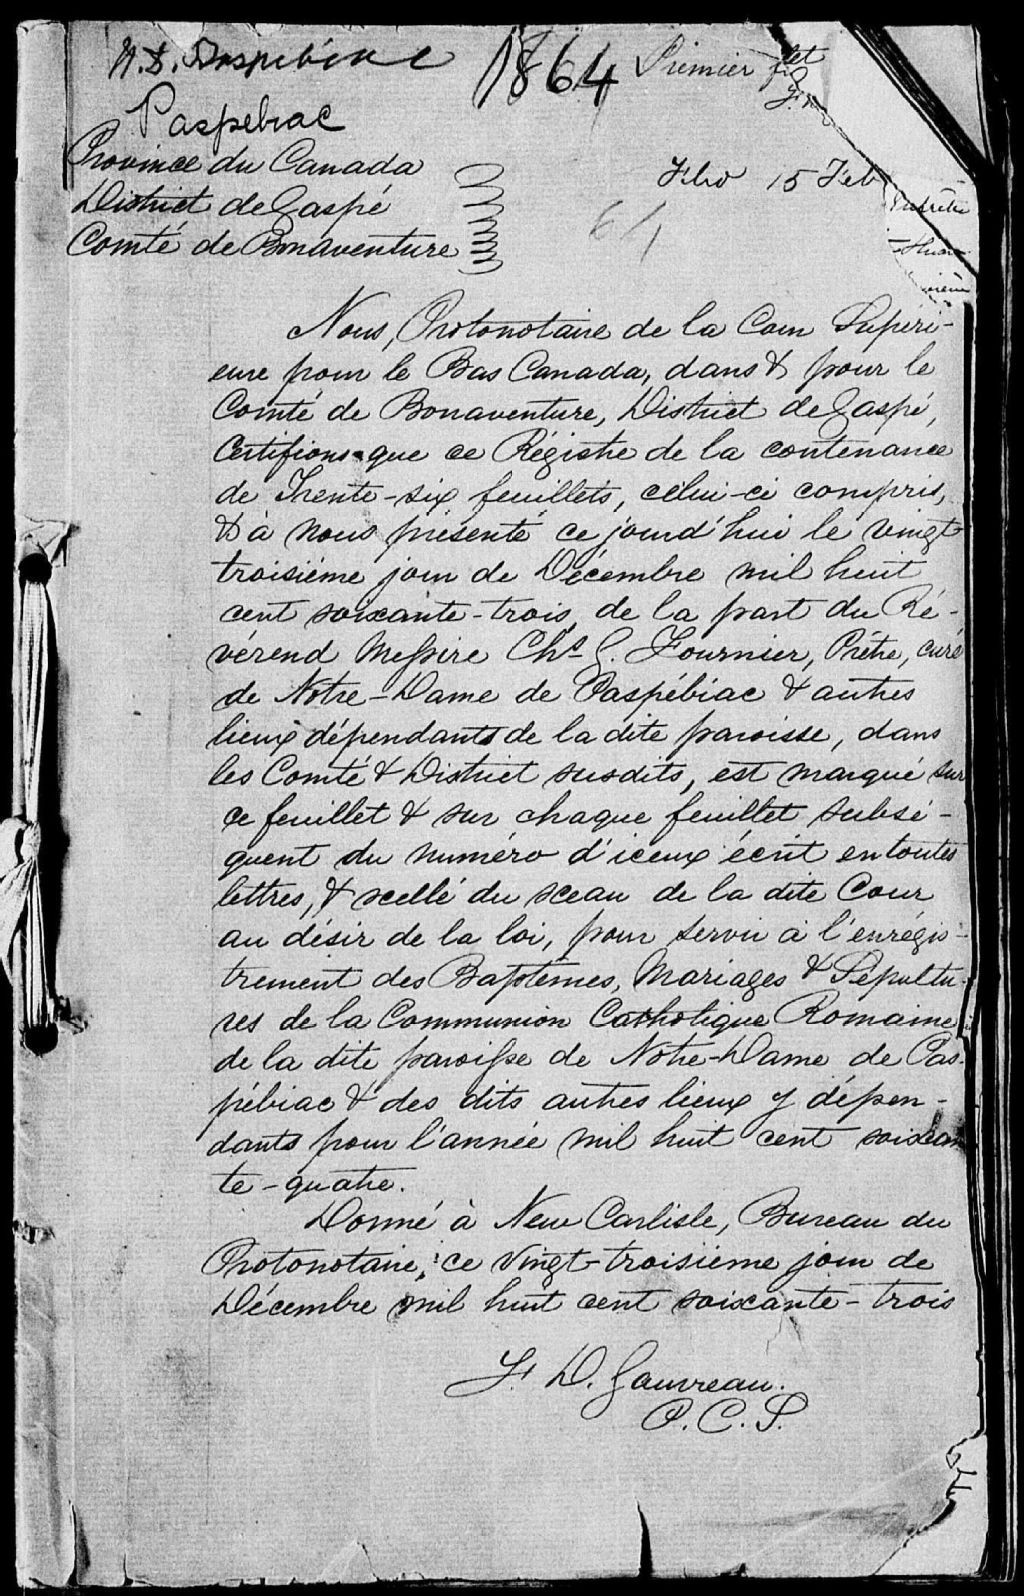 N.D. Paspébiac
1864
Premier
Paspébiac
Province du Canada
District de Gaspé
Comté de Bonaventure
15 Feb
64
Nous, Protonotaire de la Cour Supéri-
eure pour le Bas Canada, dans & pour le
Comté de Bonaventure, District de Gaspé,
Certifions que ce Régistre de la contenance
de Trente-six feuillets, celui-ci compris,
& à nous présenté ce jourd'hui le vingt
troisième jour de Décembre mil huit
cent soixante-trois, de la part du Ré-
vérend Messire Chs G. Fournier, Prêtre, curé
de Notre-Dame de Paspébiac & autres
lieux dépendants de la dite paroisse, dans
les Comté & District susdits, est marqué sur
ce feuillet & sur chaque feuillet subsé-
quent du numéro d'iceux écrit en toutes
lettres, & scellé du sceau de la dite Cour
au désir de la loi, pour servir à l'enrégis-
trement des Baptêmes, Mariages & Sépultu-
res de la Communion Catholique Romaine
de la dite paroisse de Notre-Dame de Pas-
pébiac & des dits autres lieux y dépen-
dants pour l'année mil huit cent soixan
te-quatre.
Donné à New Carlisle, Bureau du
Protonotaire, ce vingt-troisième jour de
Décembre mil huit cent soixante-trois
J. D. Gauvreau.
P.C.S.